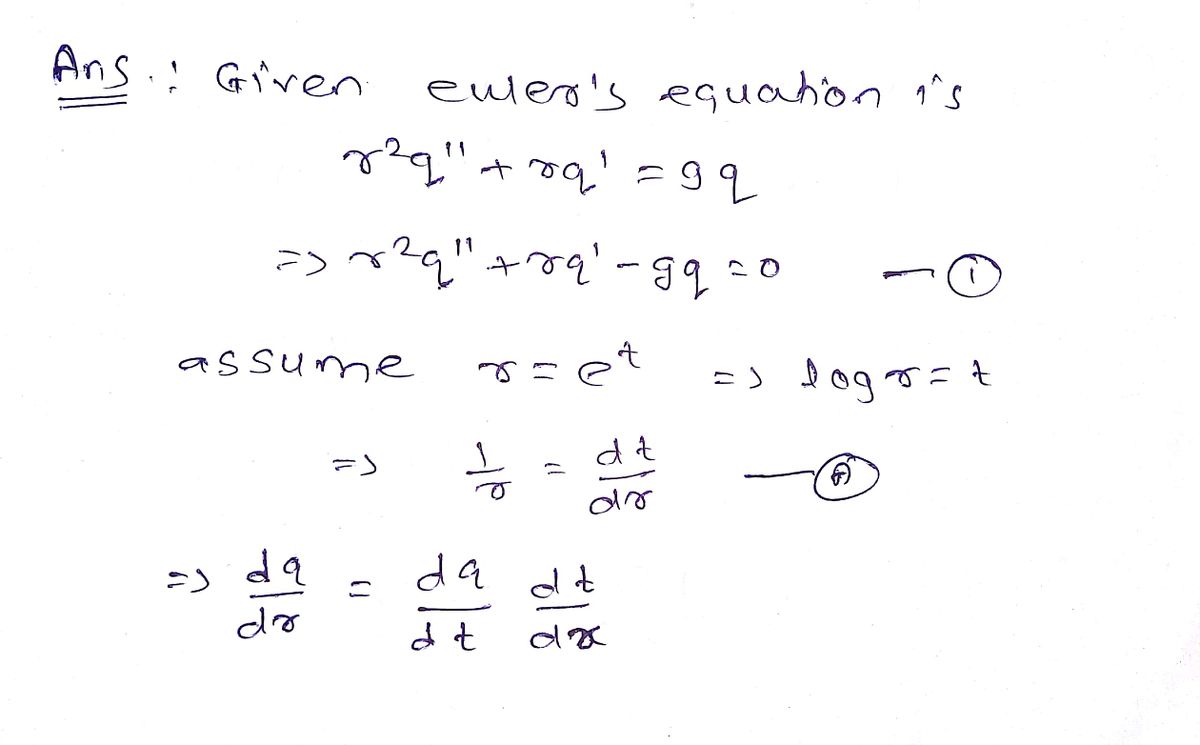 Ans : Given euler's equation is
r²q'' + rq' = gq
=> r²q'' + rq' - gq = 0 — ①
assume r = e^t => log r = t
=> 1/r = dt/dr — Ⓐ
=> dq/dr = dq/dt dt/dx